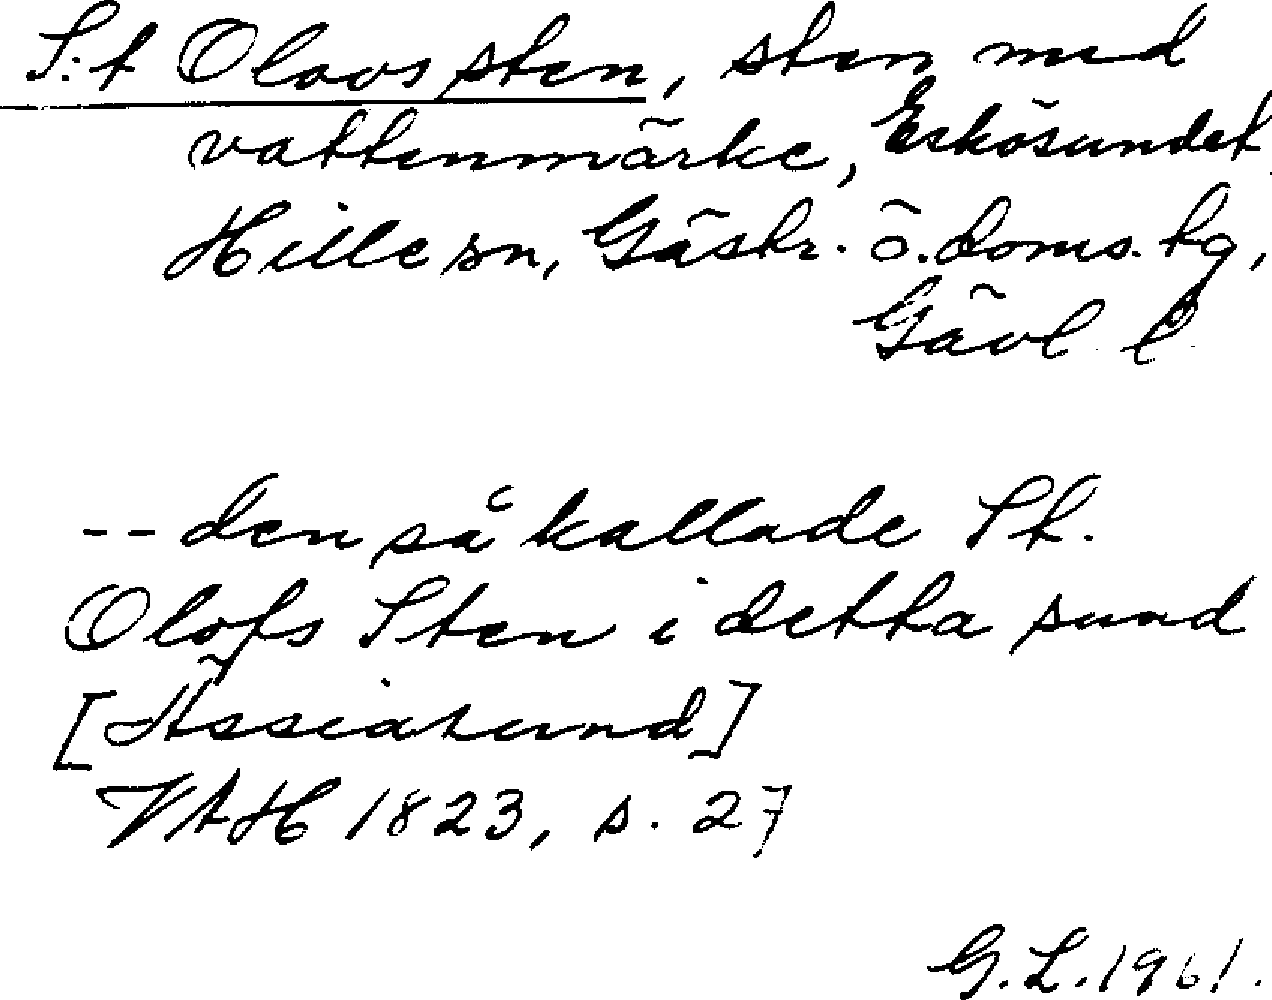 S:t Olovs sten, sten med
vattenmärke, Eskösundet
Hille sn, Gästr. ö. doms. hg,
Gävl. l.
-- den så kallade St.
Olofs Sten i detta sund
[Ässiasund]
VAH 1823, s. 27
G. L. 1961.